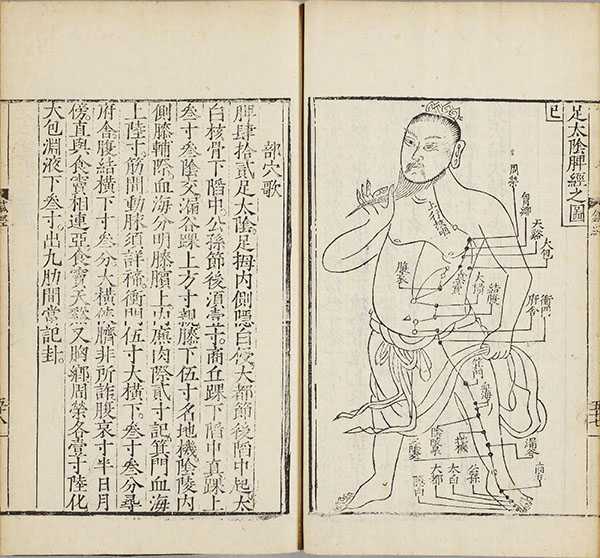 足太陰脾經之圖
巳
周榮
胸鄉
天谿
大包
食竇
大橫
腹結
腹哀
府舍
衝門
箕門
血海
陰陵泉
地機
漏谷
商丘
公孫
太白
大都
隱白
部穴歌
脾肆拾貳足太陰拇內側隱白位大都節後陷中起太
白核骨下陷中公孫節後須壹寸商丘踝下陷中真踝上
叁寸叁陰交漏谷踝上方寸親膝下伍寸名地機陰陵內
側膝輔際血海分明膝臏上內廉肉際貳寸記箕門血海
上陸寸筋間動脉須詳稀衝門伍寸大橫下叁寸叁分尋
府舍腹結橫下寸叁分大橫俠臍非所詐腹哀寸半日月
傍直與食竇相連亞食竇天谿又胸鄉周榮各壹寸陸化
大包淵液下叁寸出九肋間當記卦